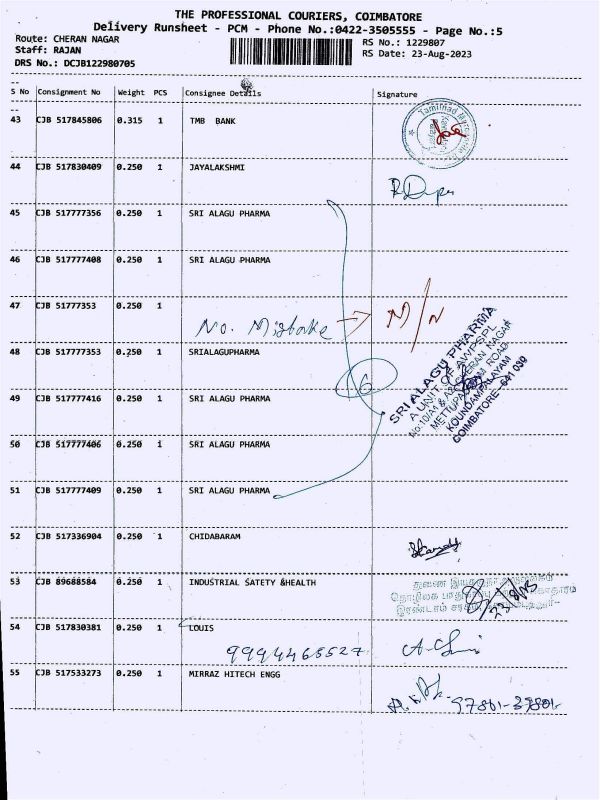 THE PROFESSIONAL COURIERS, COIMBATORE
Delivery Runsheet - PCM - Phone No.:0422-3505555 - Page No.:5
Route: CHERAN NAGAR RS No.: 1229807
Staff: RAJAN RS Date: 23-Aug-2023
DRS No.: DCJB122980705
S No Consignment No Weight PCS Consignee Details Signature
43 CJB 517845806 0.315 1 TMB BANK
44 CJB 517830409 0.250 1 JAYALAKSHMI
45 CJB 517777356 0.250 1 SRI ALAGU PHARMA
46 CJB 517777408 0.250 1 SRI ALAGU PHARMA
47 CJB 51777353 0.250 1
No. Mistake → M/N
48 CJB 517777353 0.250 1 SRIALAGUPHARMA
16
49 CJB 517777416 0.250 1 SRI ALAGU PHARMA
50 CJB 517777406 0.250 1 SRI ALAGU PHARMA
51 CJB 517777409 0.250 1 SRI ALAGU PHARMA
SRI ALAGU PHARMA
A UNIT OF AWPSPL
METTUPALAYAM ROAD
KOUNDAMPALAYAM
COIMBATORE-641 030
52 CJB 517336904 0.250 1 CHIDABARAM
53 CJB 89688584 0.250 1 INDUSTRIAL SATETY &HEALTH
54 CJB 517830381 0.250 1 LOUIS
9994468527
55 CJB 517533273 0.250 1 MIRRAZ HITECH ENGG